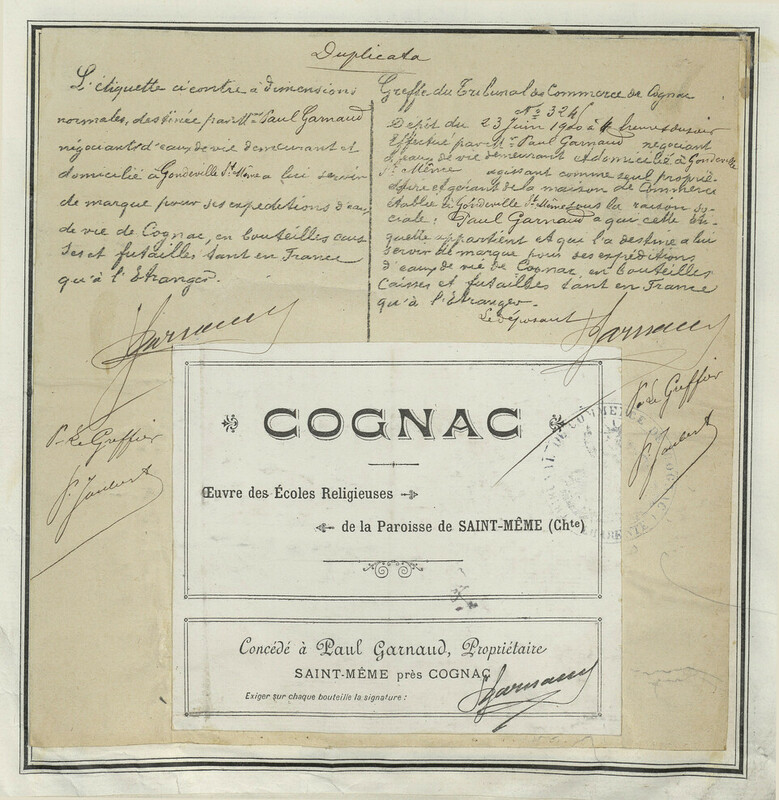 Duplicata
L'étiquette ci contre à dimensions
normales, destinée par Mr. Paul Garnaud
négociant d'eaux de vie demeurant et
domicilié à Gondeville St. Même a lui servir
de marque pour ses expéditions d'eaux
de vie de Cognac, en bouteilles cais
ses et futailles tant en France
qu'à l'Etranger.
Garnaud
Pr. Le Greffier
P. Joubert
Greffe du Tribunal de Commerce de Cognac
No 324
Dépôt du 23 Juin 1900 à 4 heures du soir
Effectué par Mr. Paul Garnaud négociant
d'eaux de vie demeurant et domicilié à Gondeville
St. Même agissant comme seul proprié-
taire et gérant de la maison de Commerce
établie à Gondeville St. Même sous la raison so-
ciale: Paul Garnaud a qui cette éti-
quette appartient et qui l'a destine a lui
servir de marque pour ses expéditions
d'eaux de vie de Cognac, en bouteilles
caisses et futailles tant en France
qu'à l'Etranger.
Le déposant Garnaud
Pr. Le Greffier
P. Joubert
COGNAC
Œuvre des Écoles Religieuses
de la Paroisse de SAINT-MÊME (Chte)
Concédé à Paul Garnaud, Propriétaire
SAINT-MÊME près COGNAC
Exiger sur chaque bouteille la signature :
Garnaud